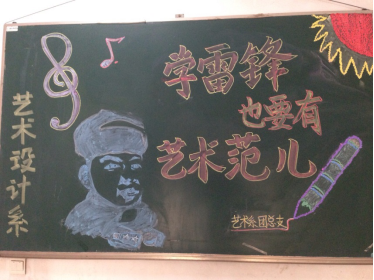 艺术设计系
学雷锋
也要有
艺术范儿
艺术系团总支